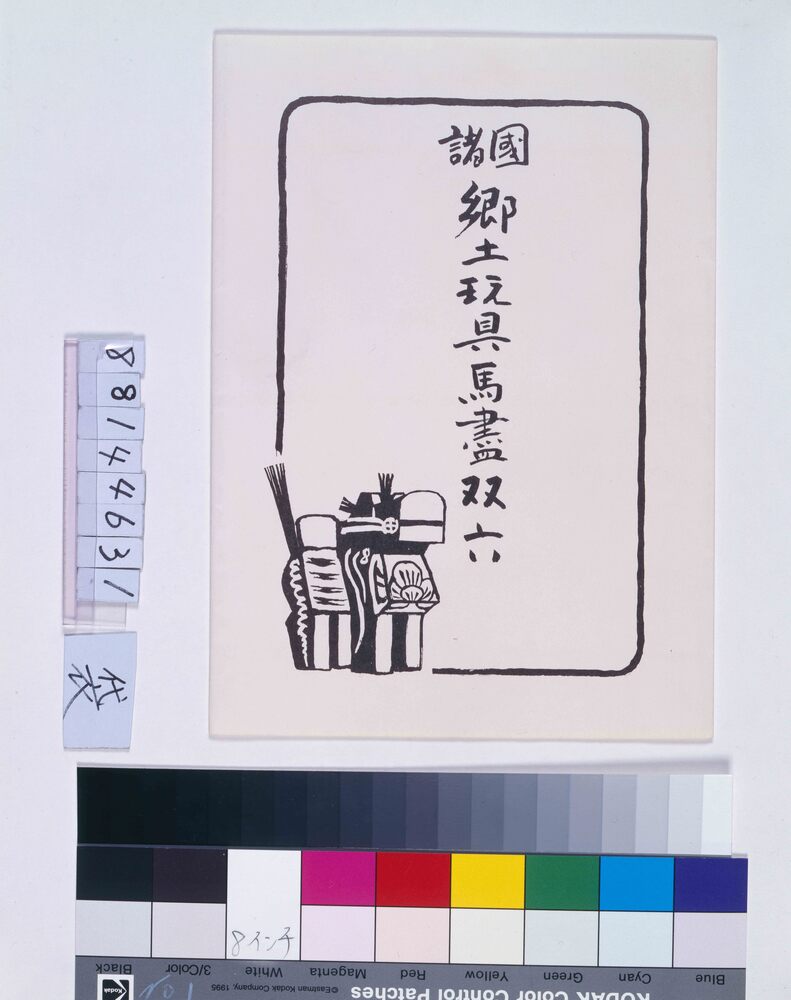 諸國
郷土玩具馬盡双六
88144631
袋
8インチ
Black
3/Color
White
Magenta
Red
Yellow
Green
Cyan
Blue
©Eastman Kodak Company, 1995
KODAK Color Control Patches
Kodak